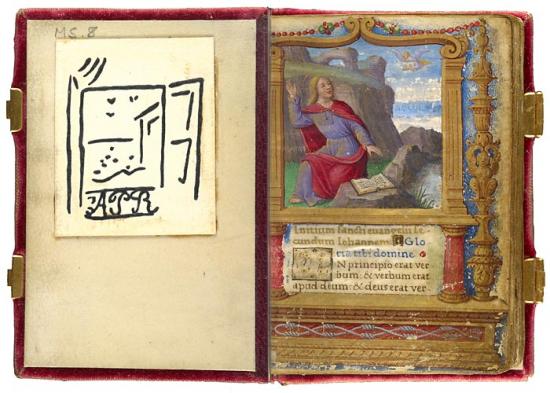 MS. 8
APR
Initium sancti evangelii se
cundum Iohannem Glo
ria tibi domine
IN principio erat ver
bum: & verbum erat
apud deum: & deus erat ver-